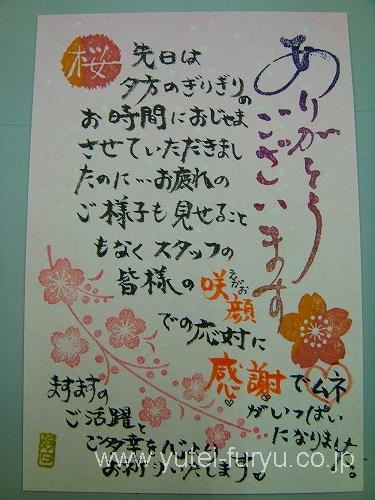 ありがとう
ございます
桜
先日は
夕方のぎりぎりの
お時間におじゃま
させていただきまし
たのに…お疲れの
ご様子も見せること
もなくスタッフの
皆様の咲顔
えがお
での応対に
感謝でムネ
がいっぱい
になりました。
ますますの
ご活躍と
ご多幸を心より
お祈りいたします
www.yutei-furyu.co.jp